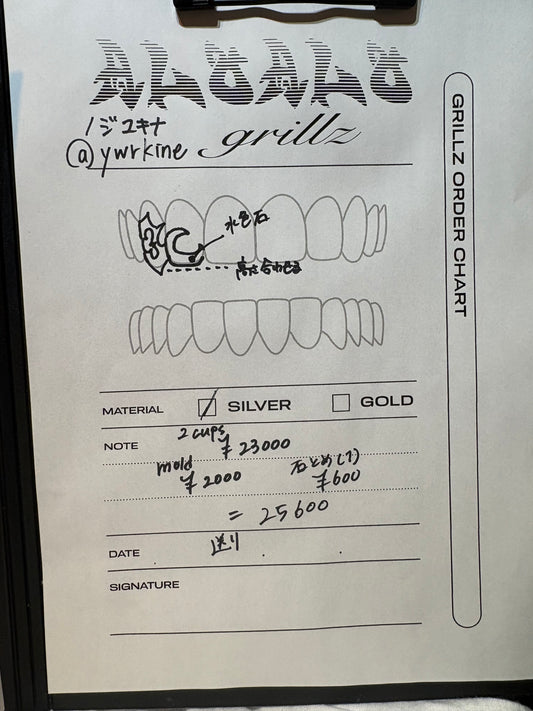 ノジユキナ
@ywrkine grillz
水色石
高さ合わせる
GRILLZ ORDER CHART
MATERIAL SILVER GOLD
NOTE 2 cups ¥23000
mold ¥2000 石とめ(1) ¥600
= 25600
DATE 送り
SIGNATURE